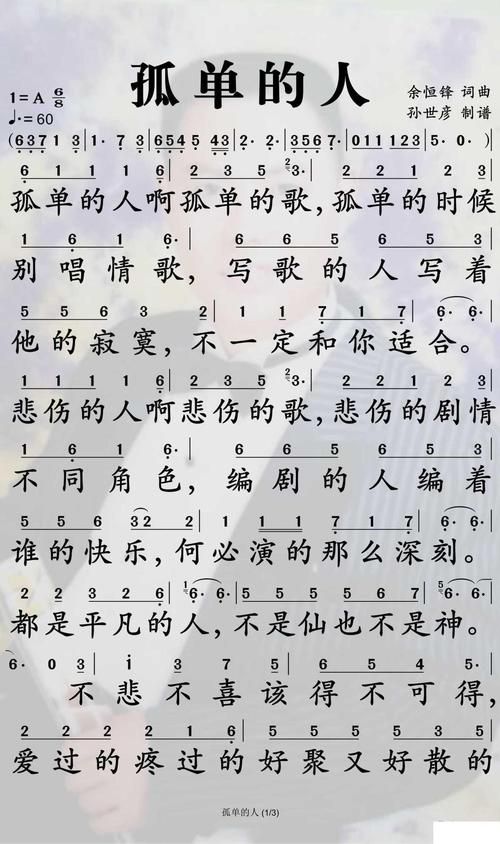 孤单的人
1=A 6/8
♩.=60
余恒锋 词曲
孙世彦 制谱
(6371 13 | 1· 73 | 654543 | 2· 2· | 3567· | 011123 |
6 1 1 2 1 6 | 2 2 3 5 3· | 2 2 1 2 3
孤单的人啊孤单的歌,孤单的时候
1 6 1 6· | 6 6 5 6 5 3
别唱情歌,写歌的人写着
5 5 6 3 2 | 1 1 7 1 7 | 6· 6· |
他的寂寞,不一定和你适合。
6 1 1 2 1 6 | 2 2 3 5 3· | 2 2 1 2 3
悲伤的人啊悲伤的歌,悲伤的剧情
1 1 1 6· | 6 6 5 6 5 3
不同角色,编剧的人编着
5 5 6 32 2 | 1 11 7 1 7 | 6· 6· |
谁的快乐,何必演的那么深刻。
2 2 3 2 3 6 | 6· 6· | 5 5 5 5 5 2 | 6· 6·
都是平凡的人,不是仙也不是神。
6· 0 3 | i 3 7 7 5 | 6 5 4 5 3
不悲不喜该得不可得,
2 2 2 2 1 6 | 5 5 5 5 3 5
爱过的疼过的好聚又好散的
孤单的人 (1/3)